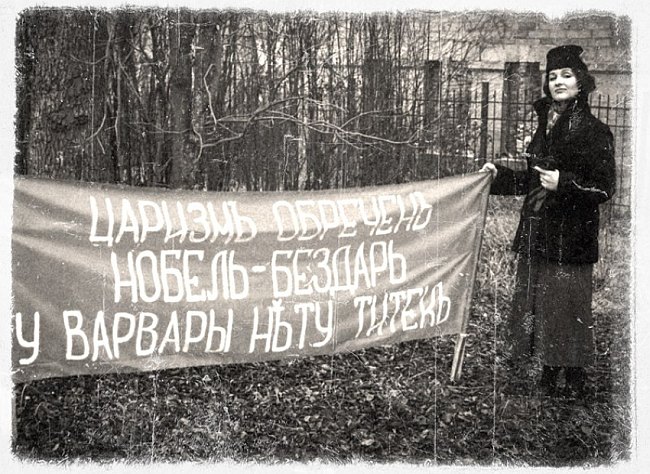 ЦАРИЗМЪ ОБРЕЧЕНЪ
НОБЕЛЬ-БЕЗДАРЬ
У ВАРВАРЫ НѢТУ ТИТЕКЪ